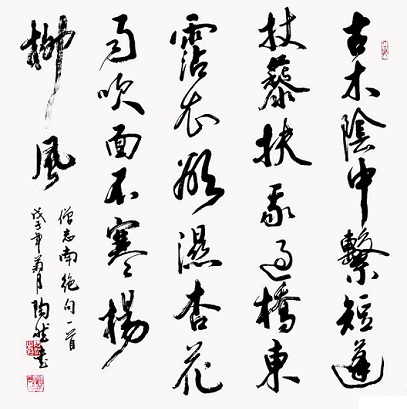 古木陰中繫短篷
杖藜扶我過橋東
霑衣欲濕杏花
雨吹面不寒楊
柳風
僧志南絕句一首
戊子年菊月陶然書